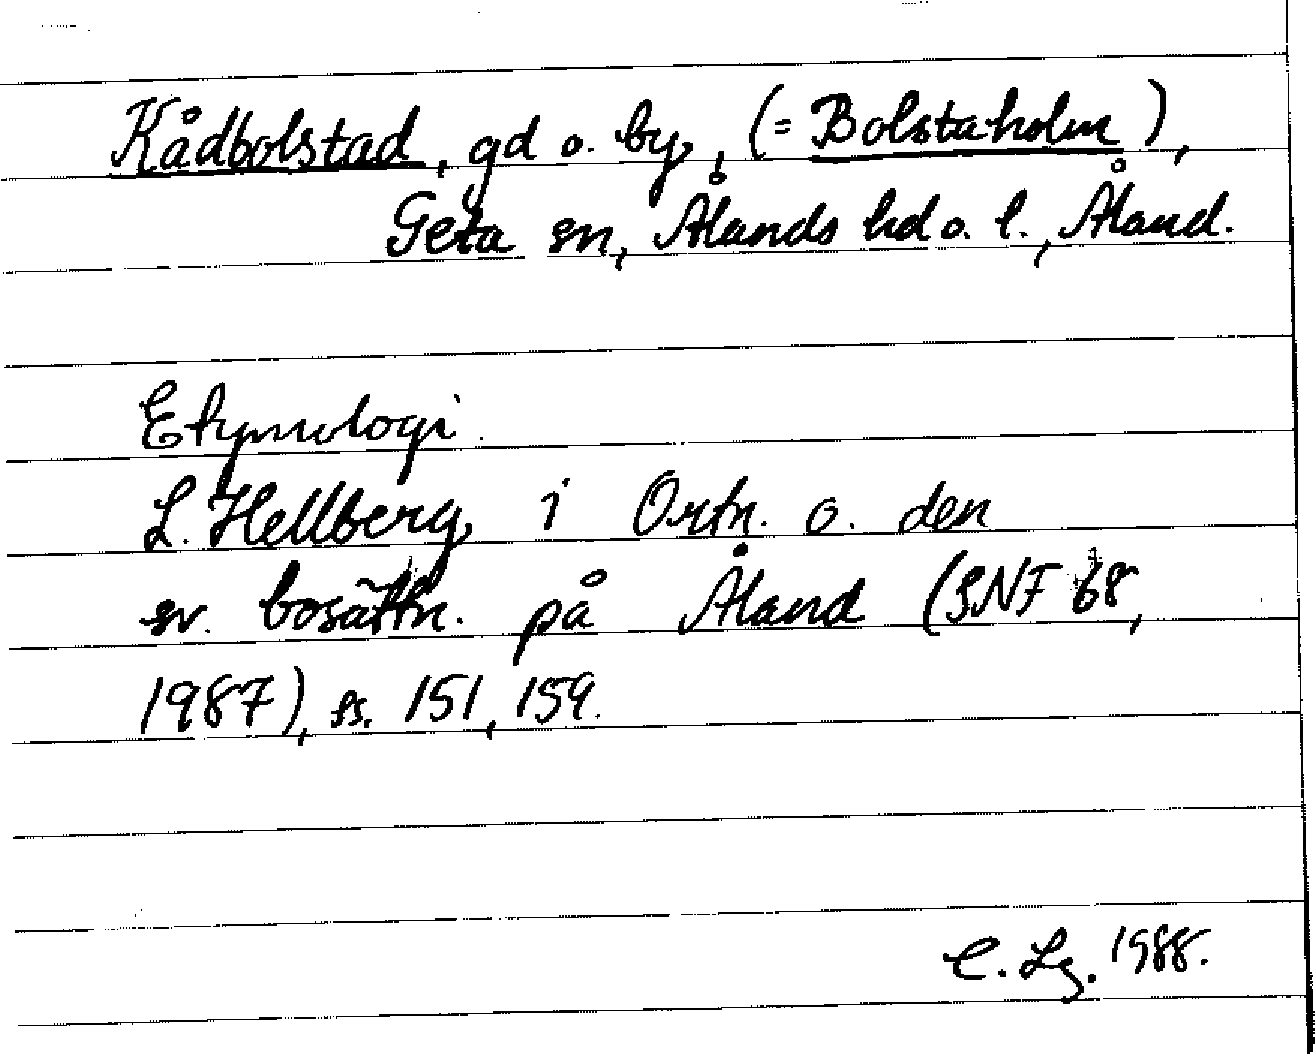 Kådbolstad, gd o. by, (= Bolstaholm),
Geta sn, Ålands hd o. l., Åland.
Etymologi.
L. Hellberg i Ortn. o. den
sv. bosättn. på Åland (SNF 68,
1987), ss. 151, 159.
C. Lg. 1988.